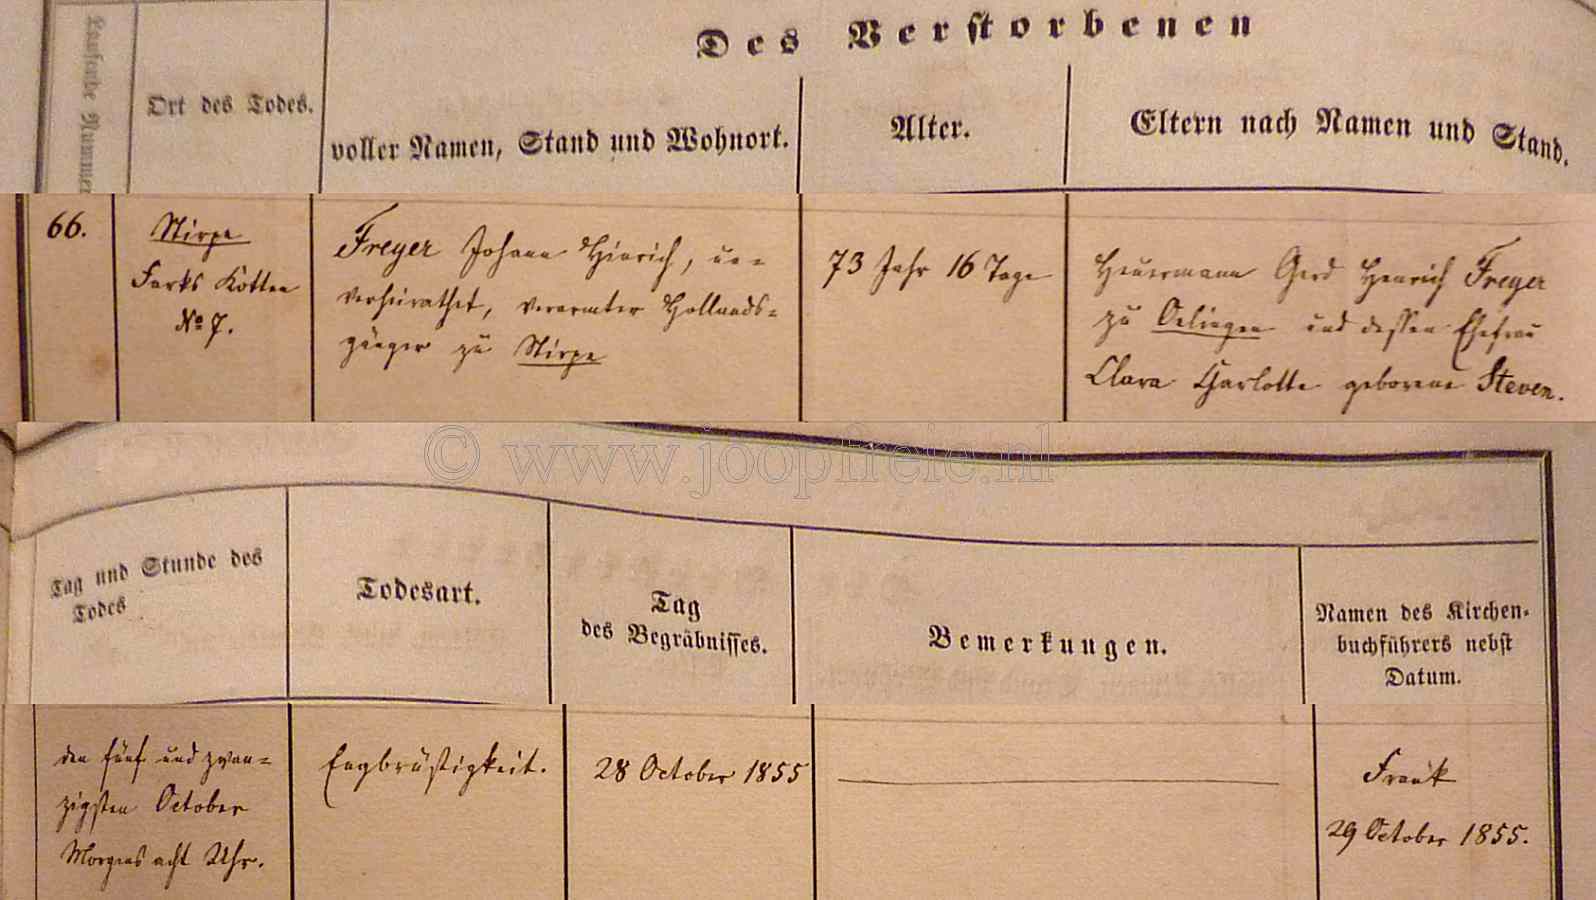 Des Verstorbenen
Laufende Nummer
Ort des Todes.
voller Namen, Stand und Wohnort.
Alter.
Eltern nach Namen und Stand.
66.
Stirpe
Farks Kotten
No 7.
Freyer Johann Hinrich, un-
verheirathet, verarmter Hollands-
gänger zu Stirpe
73 Jahr 16 Tage
Heuermann Gerd Henrich Freyer
zu Oelingen und dessen Ehefrau
Clara Charlotte geborene Steven.
© www.joopfreie.nl
Tag und Stunde des
Todes
Todesart.
Tag
des Begräbnisses.
Bemerkungen.
Namen des Kirchen-
buchführers nebst
Datum.
den fünf und zwan-
zigsten October
Morgens acht Uhr.
Engbrüstigkeit.
28 October 1855
Frank
29 October 1855.